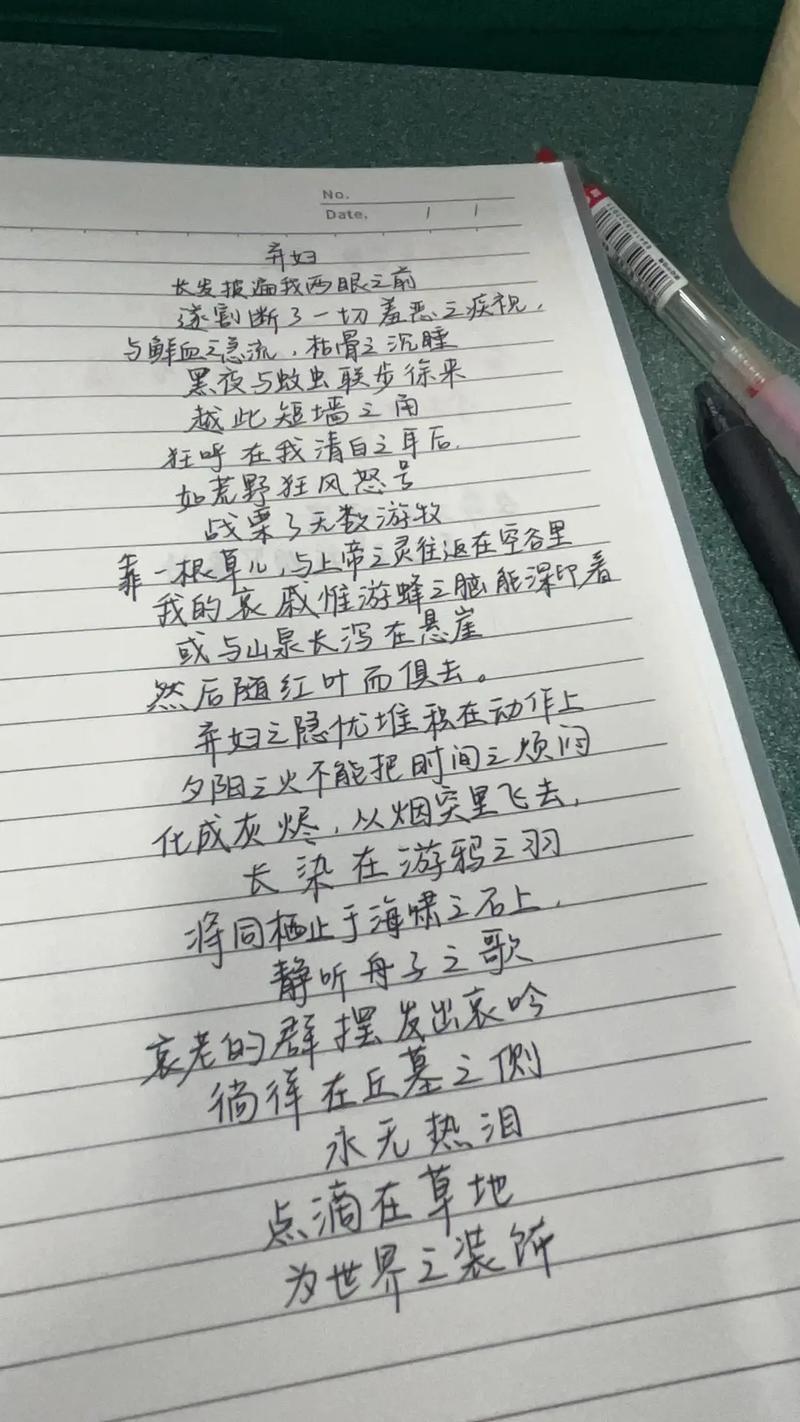 No.
Date. / /
弃妇
长发披遍我两眼之前
遂割断了一切羞恶之疾视，
与鲜血之急流，枯骨之沉睡
黑夜与蚊虫联步徐来
越此短墙之角
狂呼在我清白之耳后.
如荒野狂风怒号
战栗了无数游牧
靠一根草儿，与上帝之灵往返在空谷里
我的哀戚惟游蜂之脑能深印着
或与山泉长泻在悬崖
然后随红叶而俱去。
弃妇之隐忧堆积在动作上
夕阳之火不能把时间之烦闷
化成灰烬，从烟突里飞去，
长染在游鸦之羽
将同栖止于海啸之石上，
静听舟子之歌
哀老的群摆发出哀吟
徜徉在丘墓之侧
永无热泪
点滴在草地
为世界之装饰